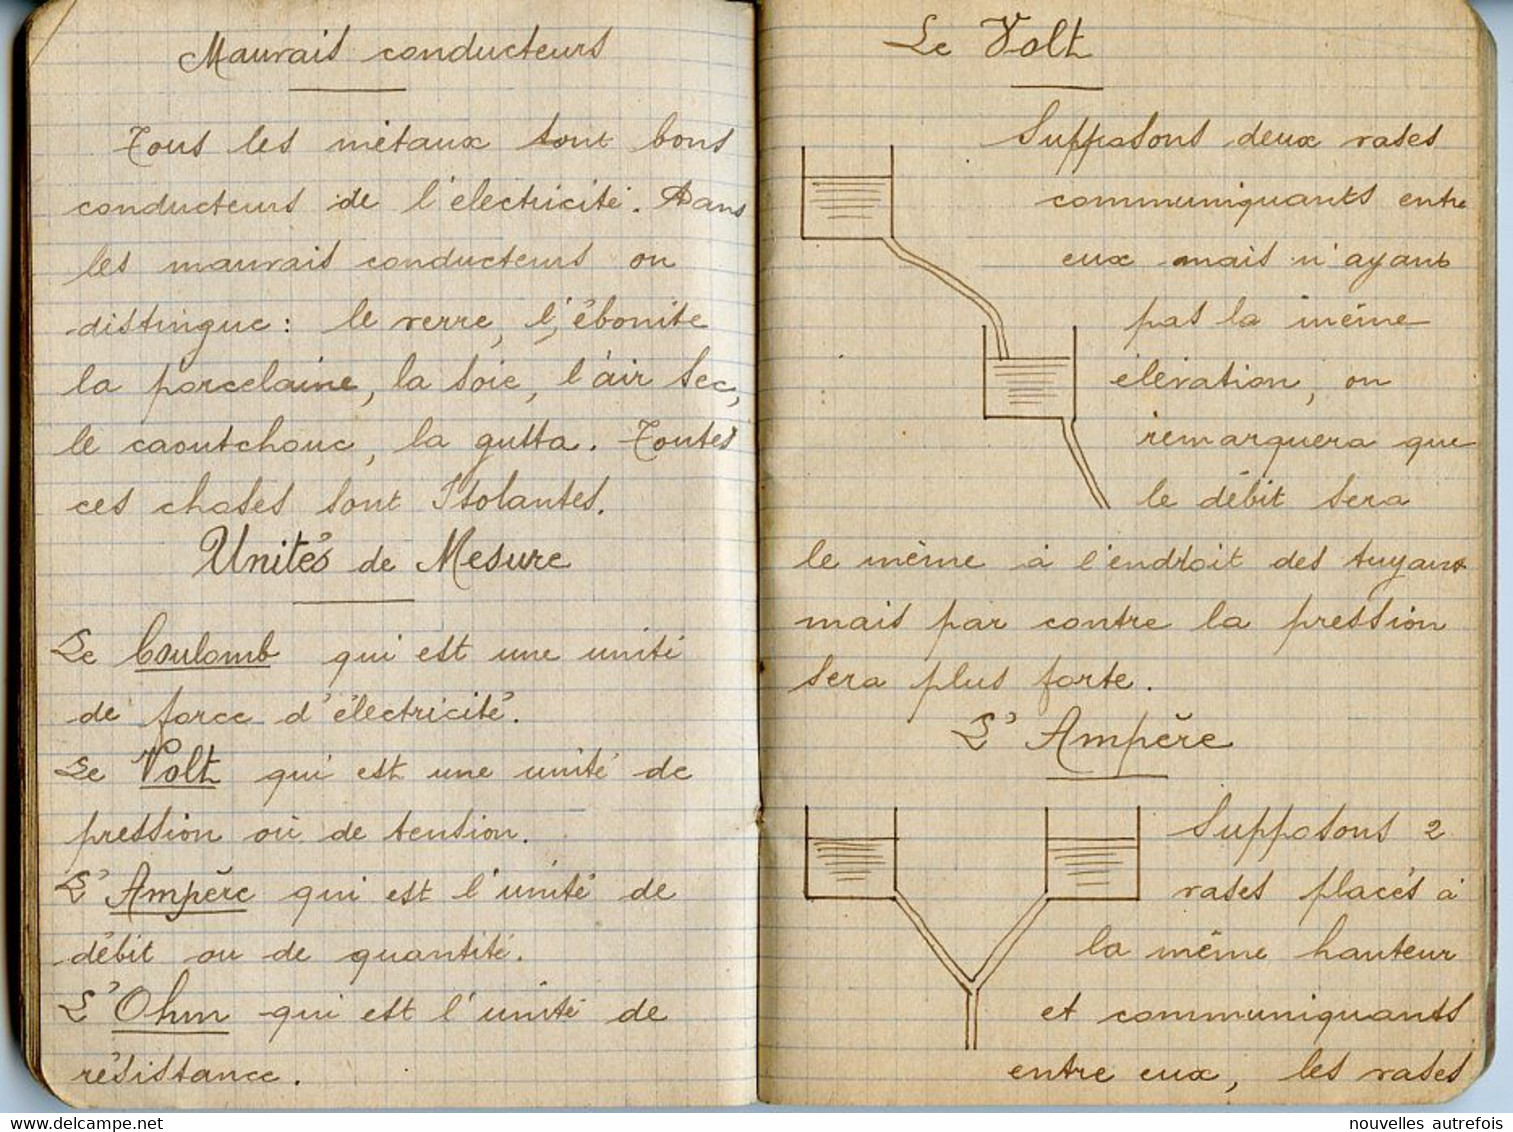 Mauvais conducteurs
Tous les métaux sont bons
conducteurs de l'électricité. Dans
les mauvais conducteurs on
distingue: le verre, l'ébonite
la porcelaine, la soie, l'air sec,
le caoutchouc, la gutta. Toutes
ces choses sont Isolantes.
Unités de Mesure
Le Coulomb qui est une unité
de force d'électricité.
Le Volt qui est une unité de
pression ou de tension.
L'Ampère qui est l'unité de
débit ou de quantité.
L'Ohm qui est l'unité de
résistance.
Le Volt
Supposons deux vases
communiquants entre
eux mais n'ayant
pas la même
élévation, on
remarquera que
le débit sera
le même à l'endroit des tuyaux
mais par contre la pression
sera plus forte.
L'Ampère
Supposons 2
vases placés à
la même hauteur
et communiquants
entre eux, les vases
delcampe.net
nouvelles autrefois